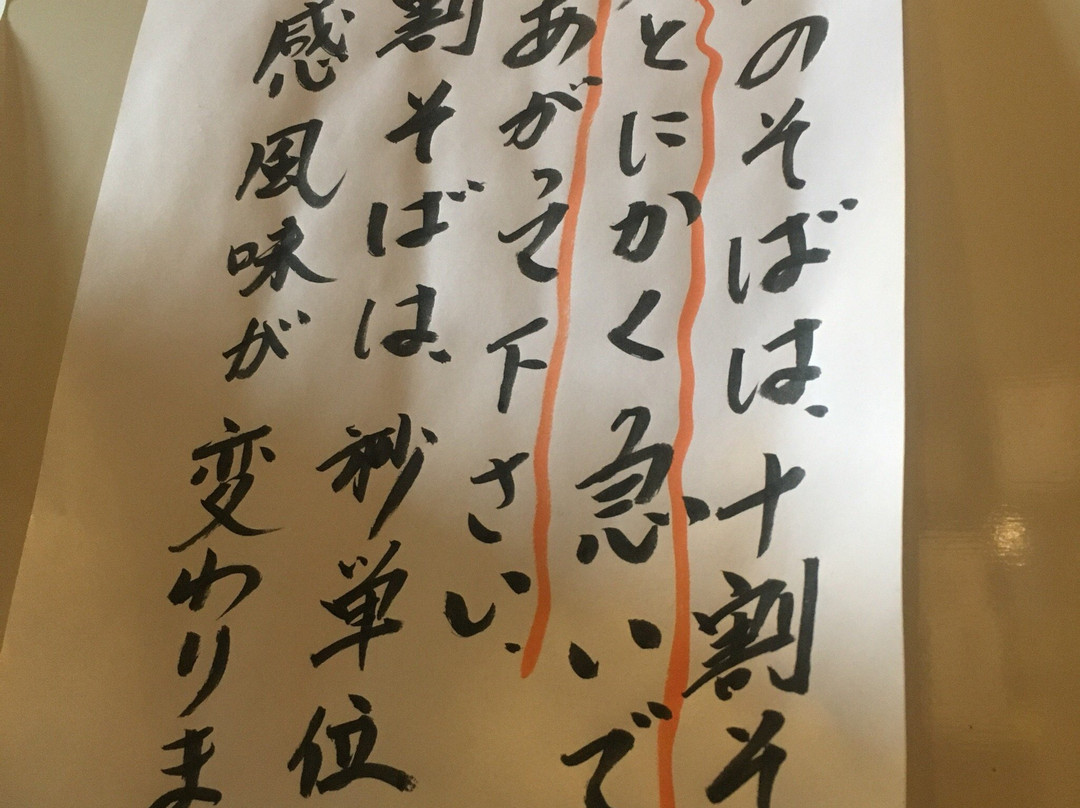 のそばは、十割そ
とにかく急いで
あがって下さい。
割そばは、秒単位
感 風味が 変わりま